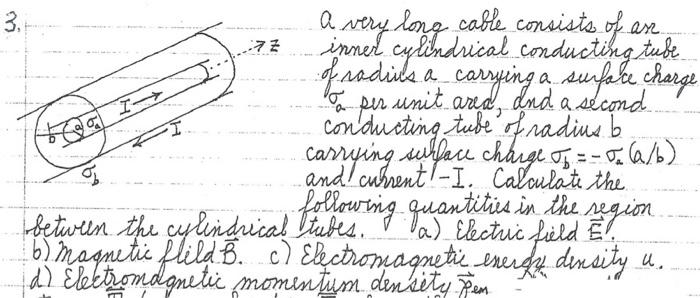 3.
a very long cable consists of an
inner cylindrical conducting tube
of radius a carrying a surface charge
σₐ per unit area, and a second
conducting tube of radius b
carrying surface charge σ_b = -σₐ (a/b)
and current -I. Calculate the
following quantities in the region
between the cylindrical tubes. a) Electric field E⃗.
b) Magnetic field B⃗. c) Electromagnetic energy density u.
d) Electromagnetic momentum density p⃗ₑₘ
z
I
I
b
a
σₐ
σ_b